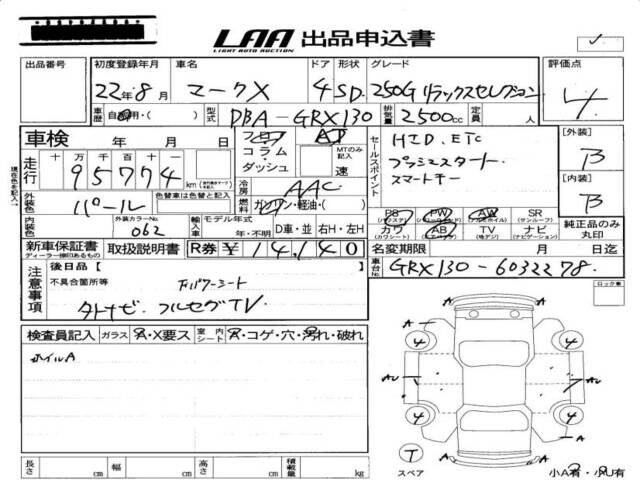 LAA 出品申込書
LIGHT AUTO AUCTION
出品番号 初度登録年月 車名 ドア 形状 グレード 評価点
22年8月 マークX 4 SD. 250G リラックスセレクション 4
車歴 自家用・( ) 型式 DBA-GRX130 排気量 2500cc 定員 人
車検 年 月 日 フロア AT
コラム・ダッシュ MTのみ記入 速
セールスポイント HID. ETC
プッシュスタート
スマートキー
[外装] B
[内装] B
現在色を記入↑
走行 十万千百十一 95774 km
冷房 AAC
外装色 パール 色替車は色替と記入 燃料 ガソリン・軽油・( )
内装色 外装カラーNo. 062 輸入車 モデル年式 年・不明 D車・並 右H・左H
PS (パワステ) PW (パワーウィンド) AW (アルミホイル) SR (サンルーフ)
カワ (カワシート) AB (エアバック) TV (地デジ) ナビ (ナビゲーション)
純正品のみ丸印
新車保証書 ディーラー捺印のあるもの 取扱説明書 R券 ¥14,140
名変期限 月 日迄
車台No. GRX130-6032278.
注意事項 後日品[ ]
不具合箇所等 パワーシート
外ナビ. フルセグTV
ロック車
検査員記入 ガラス A・X要ス 室内シート A・コゲ・穴・汚れ・破れ
ホイルA
A A
4 4
AU AU
4 4
A A
T
スペア
小A有・小U有
長さ cm 幅 cm 高さ cm 積載量 kg